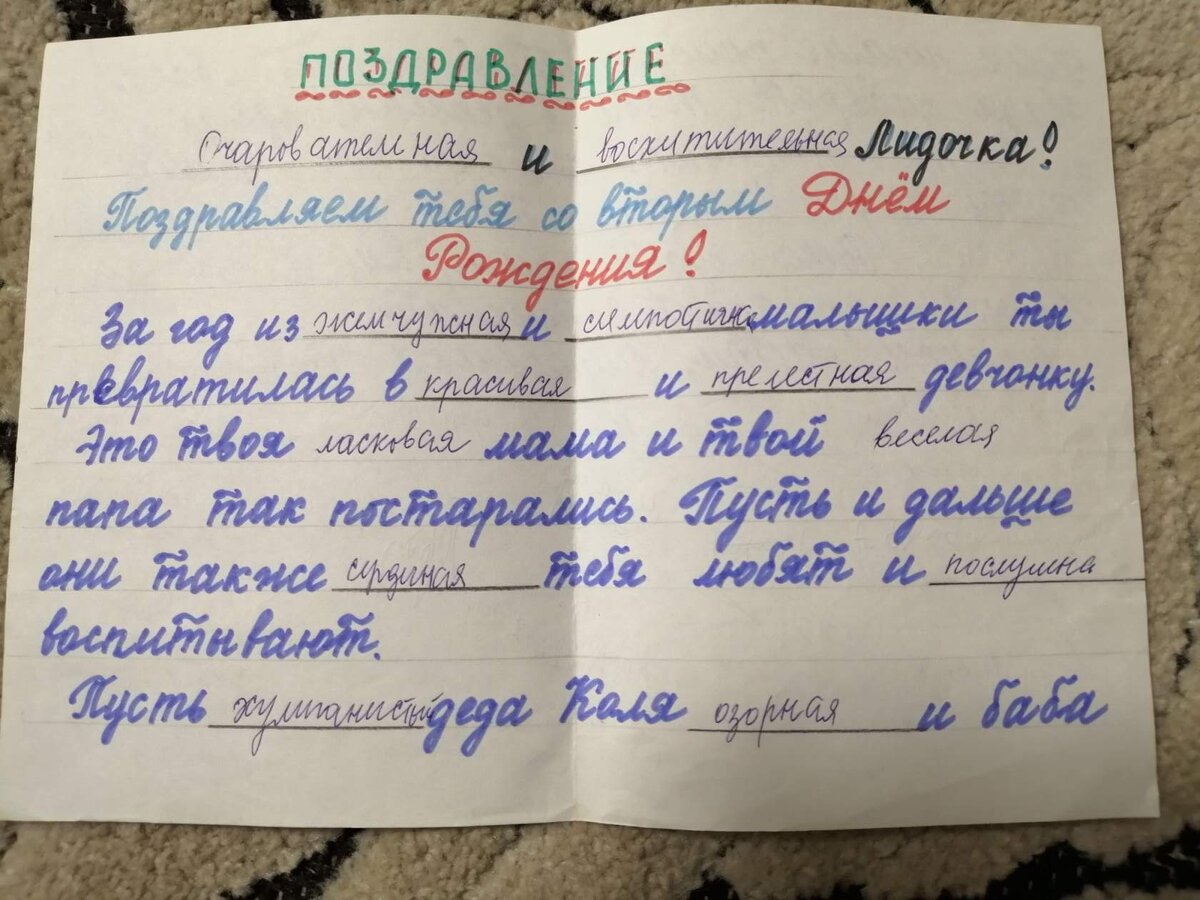 ПОЗДРАВЛЕНИЕ
Очаровательная и восхитительная Лидочка!
Поздравляем тебя со вторым Днём
Рождения!
За год из жемчужная и симпотична малышки ты
превратилась в красивая и прелестная девчонку.
Это твоя ласковая мама и твой веселая
папа так постарались. Пусть и дальше
они также тебя любят и послушна
воспитывают.
Пусть хулиганистый деда Коля озорная и баба